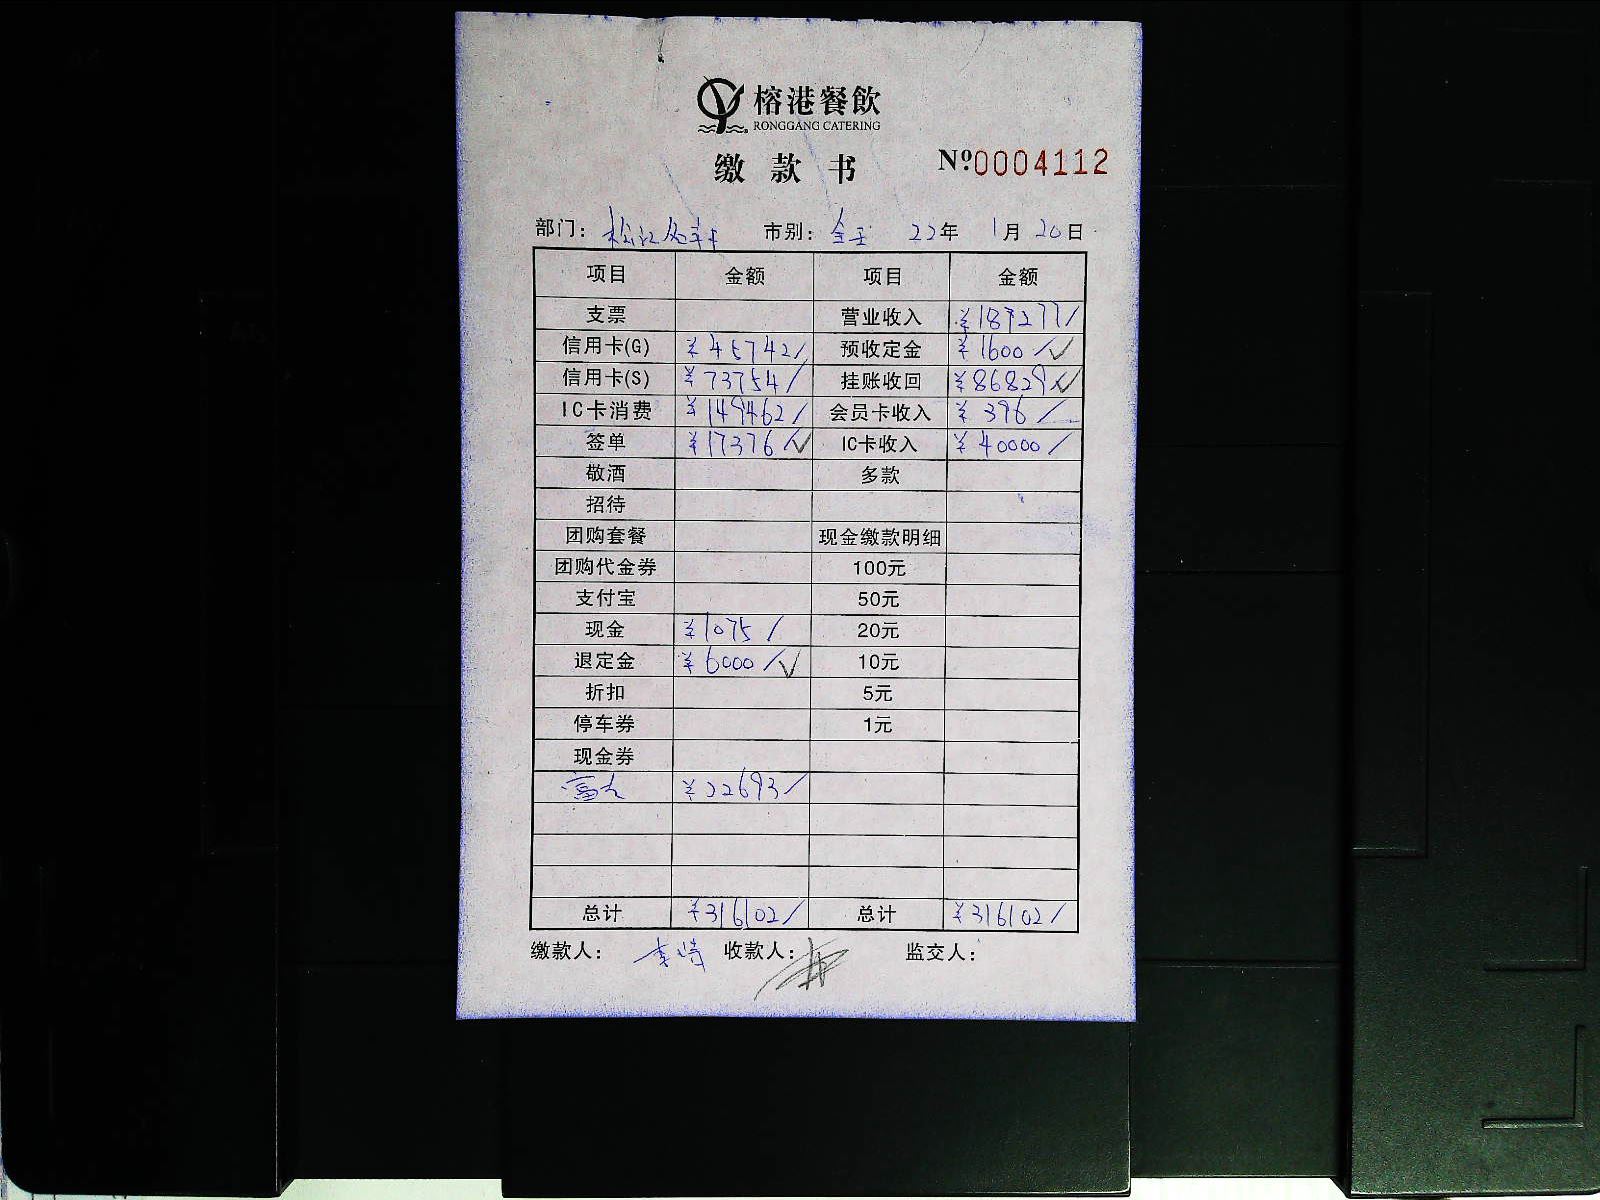 榕港餐飲
RONGGANG CATERING
缴款书 Nº0004112
部门: 松江 市别: 22年 1月 20日
项目 金额 项目 金额
支票 营业收入 ¥187277/
信用卡(G) ¥45742/ 预收定金 ¥1600/✓
信用卡(S) ¥73754/ 挂账收回 ¥86829/✓
IC卡消费 ¥149462/ 会员卡收入 ¥396/
签单 ¥17376/✓ IC卡收入 ¥40000/
敬酒 多款
招待
团购套餐 现金缴款明细
团购代金券 100元
支付宝 50元
现金 ¥1075/ 20元
退定金 ¥6000/✓ 10元
折扣 5元
停车券 1元
现金券
富友 ¥22693/
总计 ¥316102/ 总计 ¥316102/
缴款人: 收款人: 监交人: